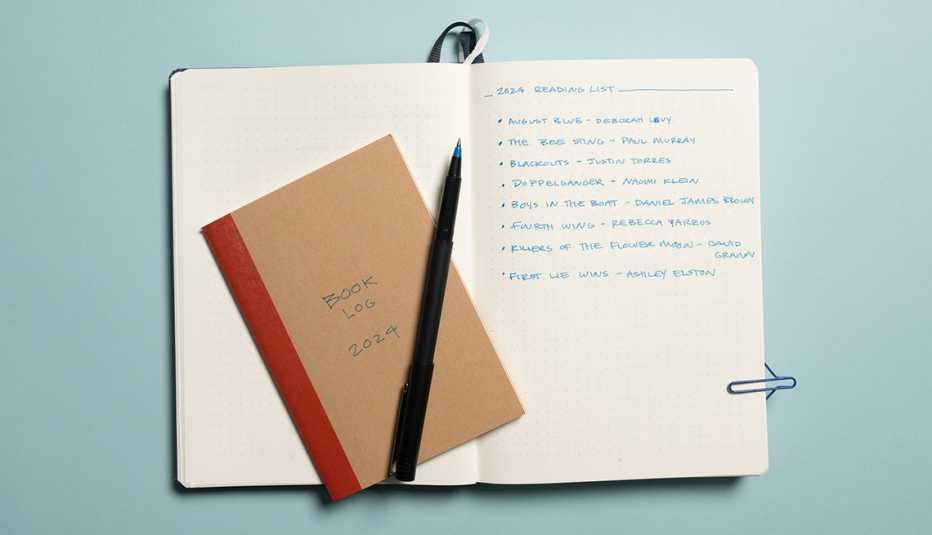 BOOK
LOG
2024
2024 READING LIST
• AUGUST BLUE - DEBORAH LEVY
• THE BEE STING - PAUL MURRAY
• BLACKOUTS - JUSTIN TORRES
• DOPPELGANGER - NAOMI KLEIN
• BOYS IN THE BOAT - DANIEL JAMES BROWN
• FOURTH WING - REBECCA YARROS
• KILLERS OF THE FLOWER MOON - DAVID
GRANN
• FIRST LIE WINS - ASHLEY ELSTON